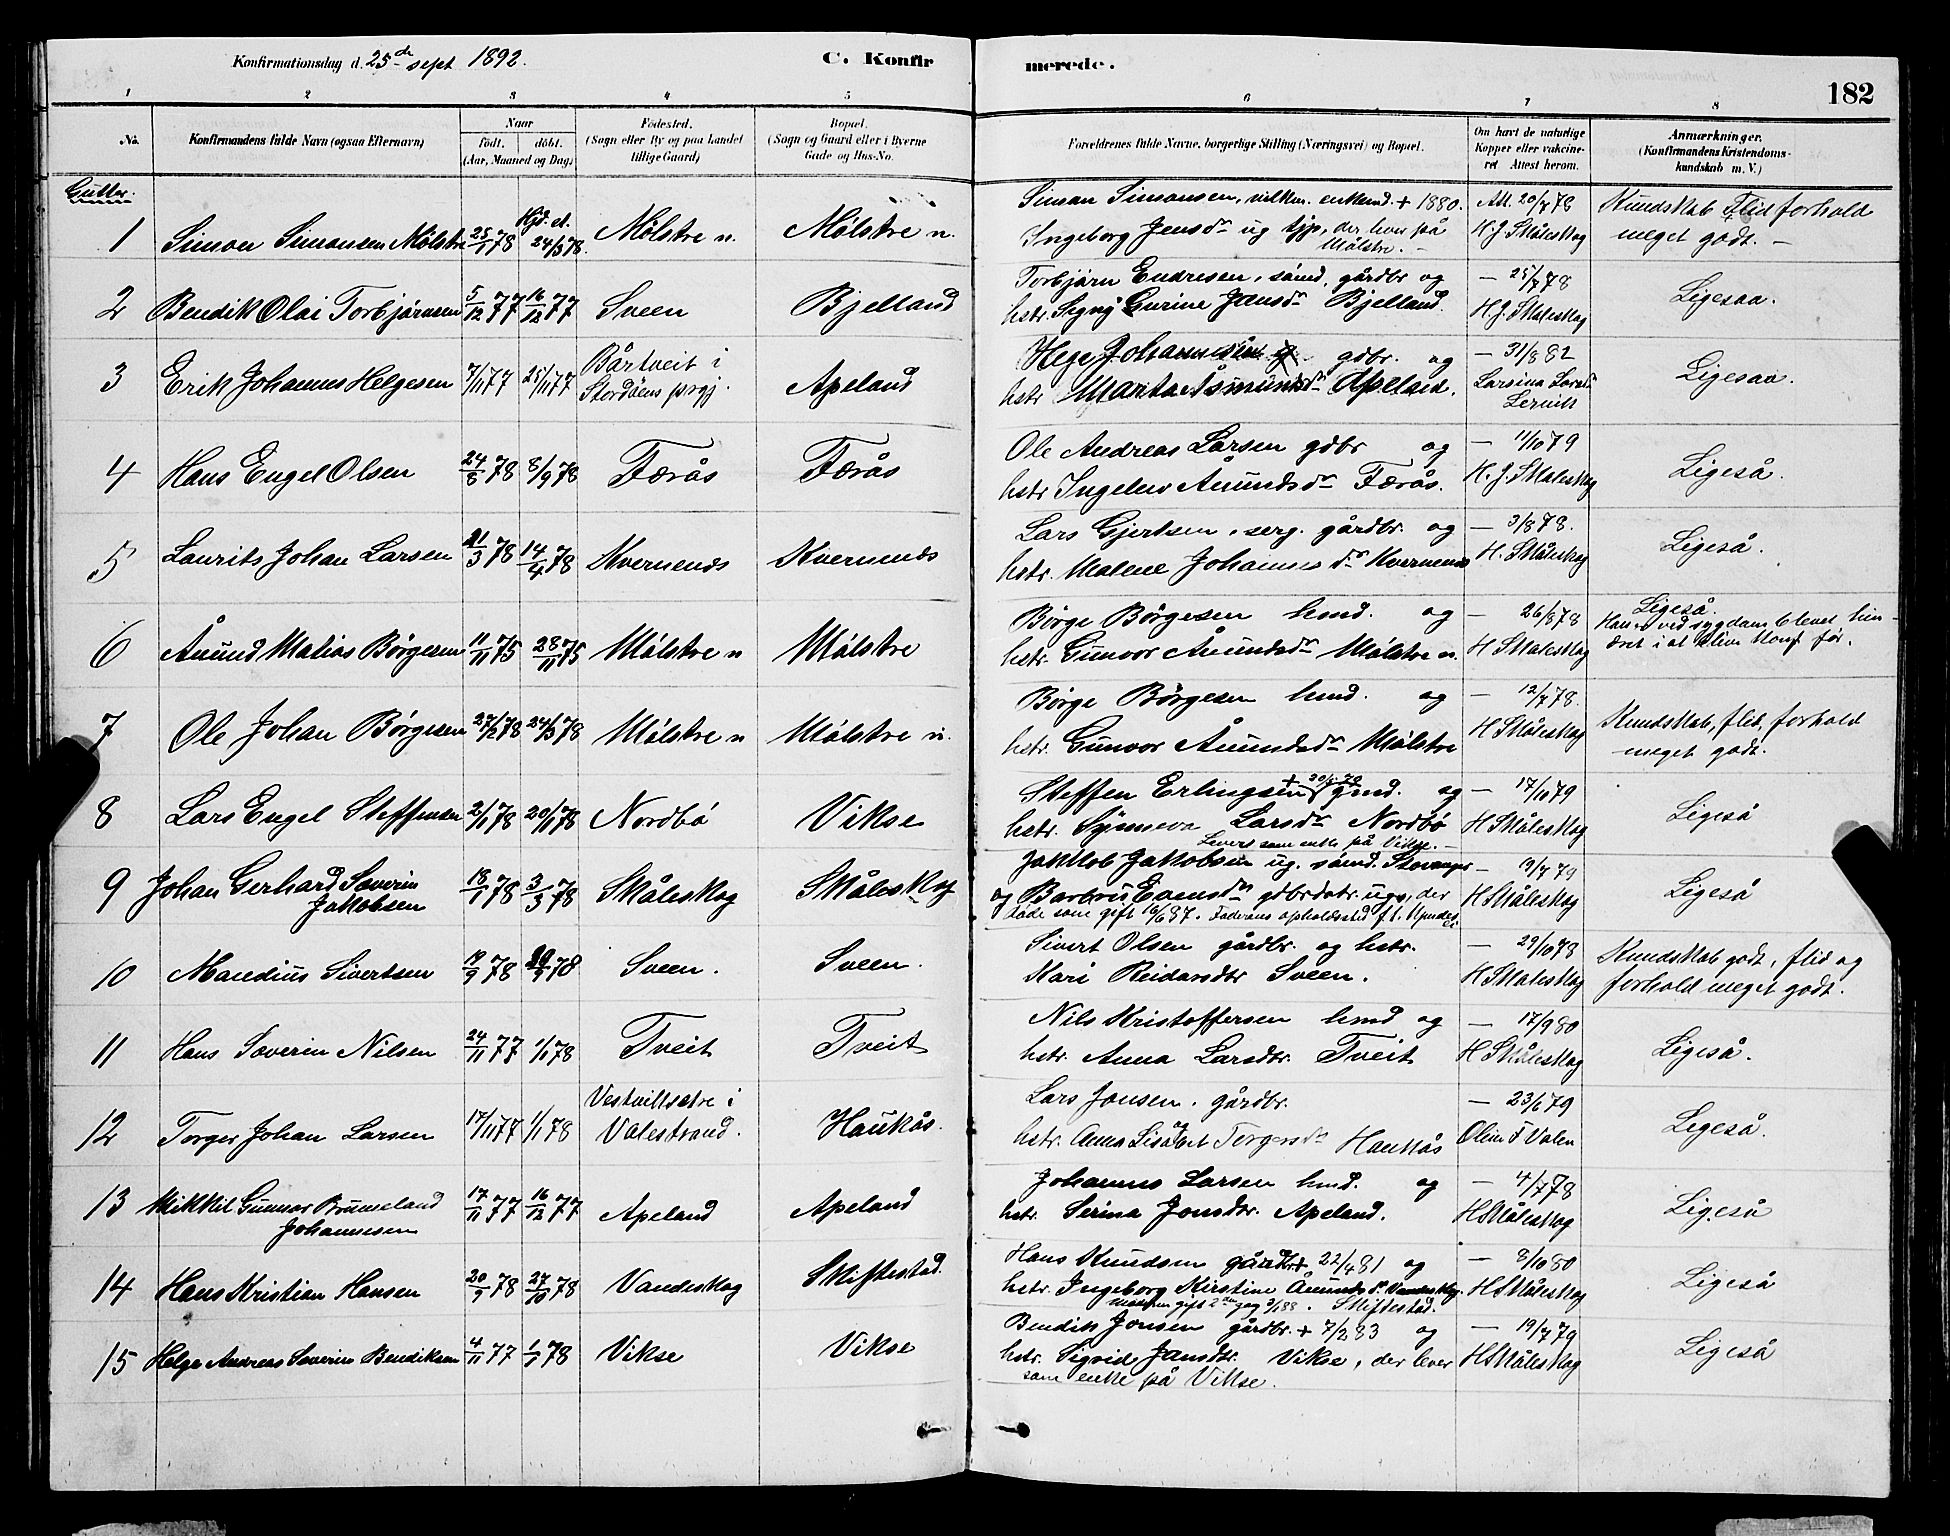 Konfirmationsdag d. 25de sept. 1892.
C. Konfirmerede.
182
1 2 3 4 5 6 7 8
No.
Konfirmandens fulde Navn (ogsaa Efternavn)
Naar
födt. döbt.
(Aar, Maaned og Dag)
Födested.
(Sogn eller By og paa Landet
tillige Gaard)
Bopæl.
(Sogn og Gaard eller i Byerne
Gade og Hus-No.
Forældrenes fulde Navne, borgerlige Stilling (Næringsvei) og Bopæl.
Om havt de naturlige
Kopper eller vakcine-
ret Attest herom.
Anmærkninger.
(Konfirmandens Kristendoms-
kundskab m. V.)
Gutter.
1 Simon Simonsen Mølstre 25/1 78 Hjd. d. 24/3 78. Mølstre n. Mølstre n.
Simon Simonsen, enkemd. + 1880.
Ingeborg Jensdr ug tjp, der bor på
Mølstre. -
Att. 20/7 78
H. J. Skåleskog
Kundskab Flid forhold
meget godt. -
2 Bendik Olai Torbjørnsen 5/12 77 16/12 77 Sveen Bjelland
Torbjørn Endresen, sømd, gårdbr og
hstr. Signy Gurine Jansdr Bjelland.
- 25/7 78
H. J. Skaleskog
Ligesaa.
3 Erik Johannes Helgesen 7/11 77 25/11 77 Bårtveit i
Stordøens prgj. Apeland
Hege Johannesen gdbr. og
hstr Marita Åsmundsdr Apeland.
- 31/8 82
Larsina Larsd.
Lervik
Ligesaa.
4 Hans Engel Olsen 24/8 78 8/9 78 Færås Færås
Ole Andreas Larsen gdbr og
hstr Ingeleiv Åmundsdr Færås.
- 11/10 79
H. J. Skaleskog
Ligeså.
5 Laurits Johan Larsen 21/3 78 14/4 78 Kvernenes Kvernenes
Lars Gjertsen, serg. gårdbr. og
hstr. Malene Johannesdr Kvernenes
- 3/8 78.
H. Skåleskog
Ligeså.
6 Åmund Matias Børgesen 11/11 75 28/11 75 Mølstre n Mølstre
Børge Børgesen hmd. og
hstr. Gunvor Åmundsdr Mølstre n.
- 26/8 78
H Skaleskog
Ligeså.
Han er ved sygdom blevet hin-
dret i at blive konf før.
7 Ole Johan Børgesen 27/2 78 24/3 78 Mølstre n Mølstre n.
Børge Børgesen hmd. og
hstr. Gunvor Åmundsdr Mølstre
- 12/7 78.
H Skåleskog
Kundskab, flid, forhold
meget godt.
8 Lars Engel Steffensen 2/1 78 20/1 78 Nordbø Vikse
Steffen Erlingsen hmd. og
hstr. Synneva Larsdr Nordbø
Lever som enke på Vikse. -
- 17/10 79
H Skåleskog
Ligeså
9 Johan Gerhard Soverin
Jakobsen 18/1 78 3/3 78 Skåleskog Skåleskog
Jakob Jakobsen ug. sømd. Stavanger
og Barbru Evensdr gdbrdatr. ugv, der
døde som gift 10/6 87. Faderens opholdssted f.t. Upudes
- 19/7 79
H Skåleskog
Ligeså
10 Mandius Sivertsen 19/9 78 29/9 78 Sveen. Sveen.
Sivert Olsen gårdbr. og hstr.
Kari Reidarsdtr Sveen.
- 29/10 78
H Skaleskog
Kundskab godt, flid og
forhold meget godt.
11 Hans Soverin Nilsen 24/11 77 1/1 78 Tveit Tveit
Nils Kristoffersen hmd og
hstr. Anna Larsdtr. Tveit
- 17/9 80
H Skåleskog
Ligeså.
12 Torger Johan Larsen 17/11 77 1/1 78 Vestvikssætre i
Valestrand. Haukås.
Lars Jonsen. gårdbr.
hstr. Anna Lisabet Torgersdr Haukås
- 23/6 79
Oline T Valen
Ligeså.
13 Mikkel Gunnar Brumeland
Johannesen 17/11 77 16/12 77 Apeland Apeland
Johannes Larsen hmd. og
hstr. Serina Jonsdtr. Apeland.
- 4/7 78
H Skåleskog
Ligeså
14 Hans Kristian Hansen 20/9 78 27/10 78 Vandeskog Skiftestad.
Hans Knudsen gårdbr + 22/4 81 og
hstr. Ingeborg Kirstine Åmundsdr Vandeskog.
Moderen gift 2den gang 9/1 88. Skiftestad.
- 8/10 80
H Skåleskog
Ligeså
15 Helge Andreas Soverin Bendiksen 4/11 77 1/1 78 Vikse Vikse
Bendik Jonsen gårdbr. + 7/2 83 og
hstr. Sigrid Jansdtr. Vikse, der lever
som enke på Vikse.
- 19/7 79
H Skåleskog
Ligeså